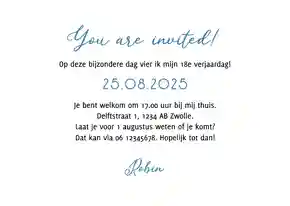 You are invited!
Op deze bijzondere dag vier ik mijn 18e verjaardag!
25.08.2025
Je bent welkom om 17.00 uur bij mij thuis.
Delftstraat 1, 1234 AB Zwolle.
Laat je voor 1 augustus weten of je komt?
Dat kan via 06 12345678. Hopelijk tot dan!
Robin